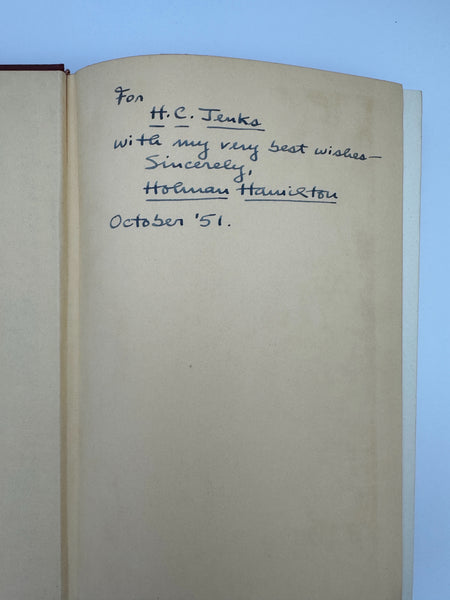 For
H. C. Jenks
with my very best wishes—
Sincerely,
Holman Hamilton
October '51.